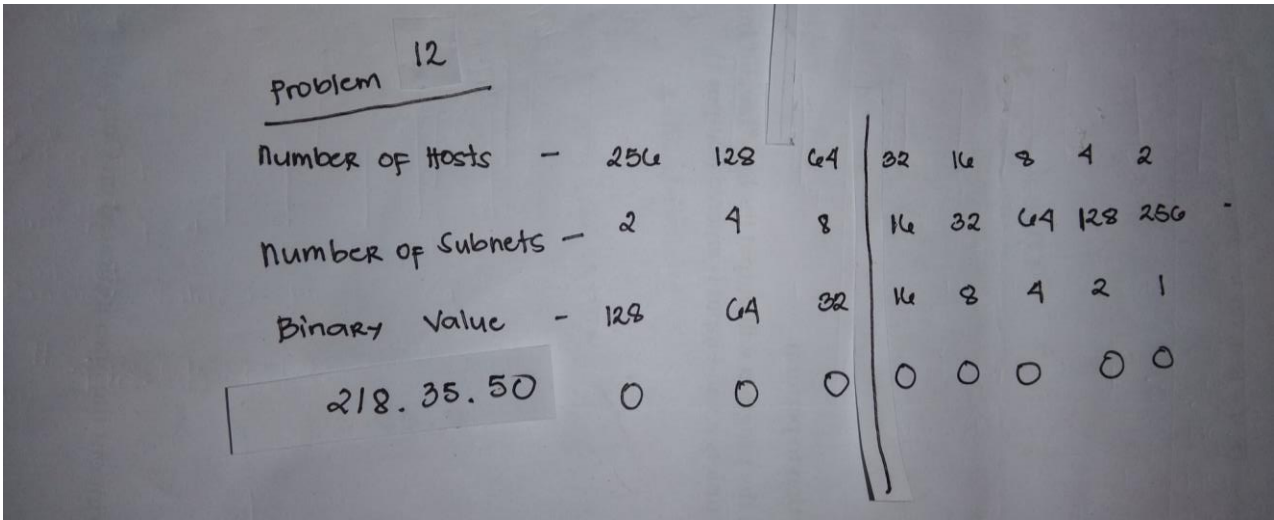 Problem 12
Number of Hosts - 256 128 64 32 16 8 4 2
Number of Subnets - 2 4 8 16 32 64 128 256 -
Binary Value - 128 64 32 16 8 4 2 1
218.35.50 0 0 0 0 0 0 0 0